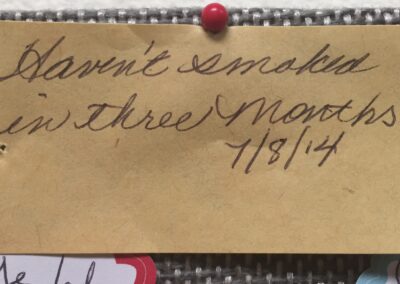 Haven't smoked
in three Months
7/8/14